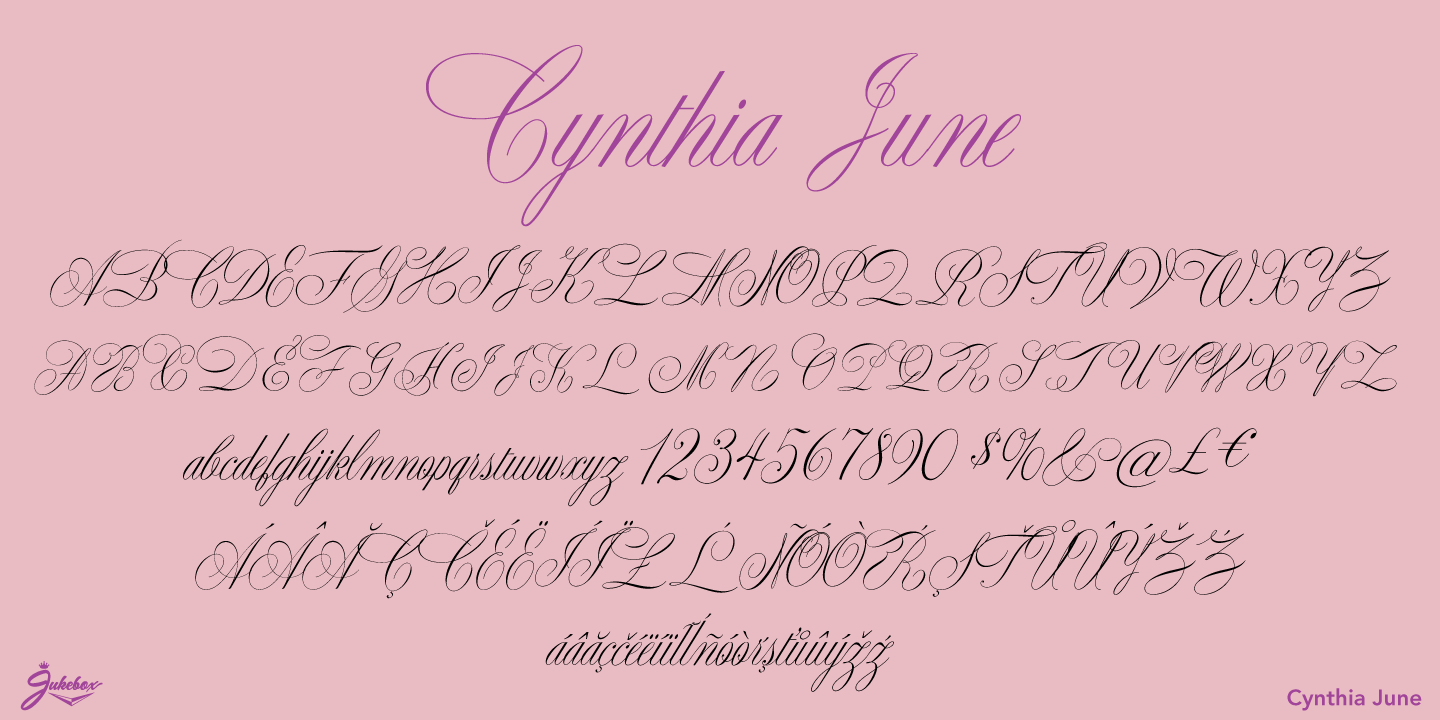 Cynthia June
ABCDEFGHIJKLMNOPQRSTUVWXYZ
ABCDEFGHIJKLMNOPQRSTUVWXYZ
abcdefghijklmnopqrstuvwxyz 1234567890 $%&@£€
ÁÂĂÇČĔÉËÍÍÏŁĹÑÓÒŔŞŤŮÛÝŽŹ
áâăçčĕéëíïĺñóòŕşťůûýžź
Jukebox
Cynthia June